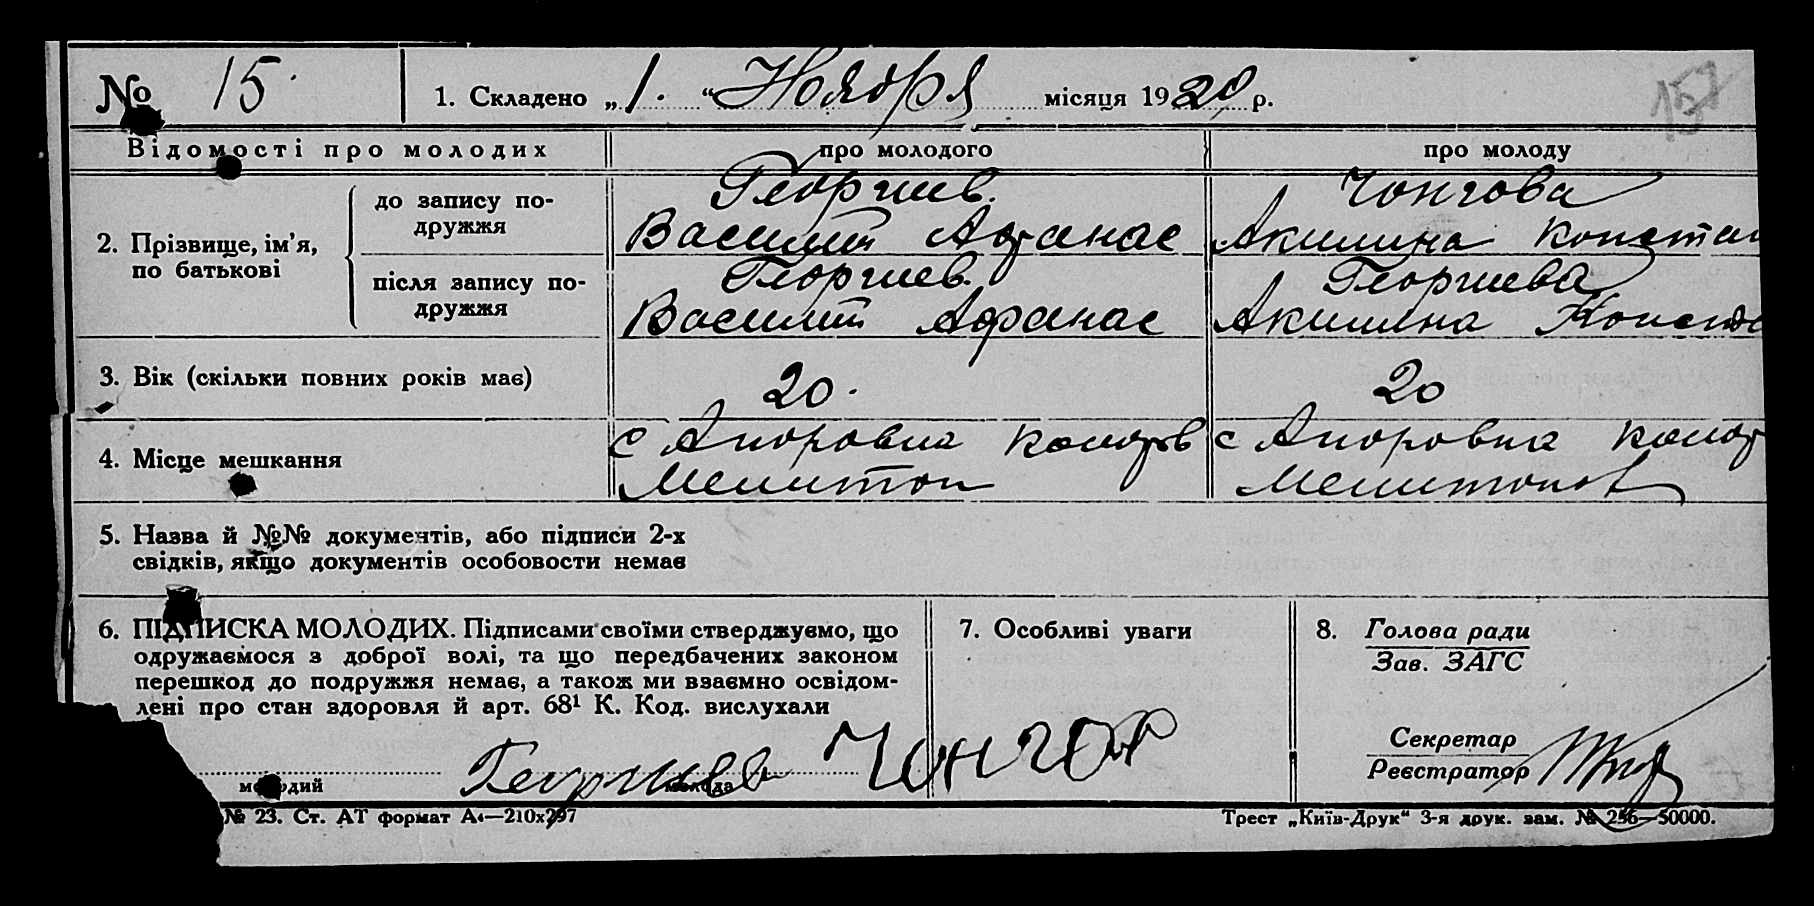 № 15. 1. Складено „1.“ Ноября місяця 1929 р.
157
Відомості про молодих про молодого про молоду
2. Прізвище, ім’я, по батькові
до запису по-
дружжя
Георгиев.
Василий Афанас
Чонгова
Акилина Констан
після запису по-
дружжя
Георгиев.
Василий Афанас
Георгиева
Акилина Конста
3. Вік (скільки повних років має) 20. 20
4. Місце мешкання
с Аноровка
Мелитоп
с Аноровка
Мелитопол
5. Назва й №№ документів, або підписи 2-х
свідків, якщо документів особовости немає
6. ПІДПИСКА МОЛОДИХ. Підписами своїми стверджуємо, що
одружаємося з доброї волі, та що передбачених законом
перешкод до подружжя немає, а також ми взаємно освідом-
лені про стан здоровля й арт. 68¹ К. Код. вислухали
Георгиев Чонгов
молодий молода
7. Особливі уваги
8. Голова ради
Зав. ЗАГС
Секретар
Реєстратор
№ 23. Ст. АТ формат А₄—210х297 Трест „Київ-Друк“ 3-я друк. зам. № 256—50000.